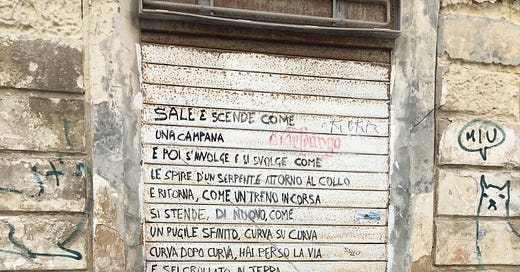 SALE E SCENDE COME
UNA CAMPANA
E POI S'AVVOLGE E SI SVOLGE COME
LE SPIRE D'UN SERPENTE ATTORNO AL COLLO
E RITORNA, COME UN TRENO IN CORSA
SI STENDE, DI NUOVO, COME
UN PUGILE SFINITO, CURVA SU CURVA
CURVA DOPO CURVA, HAI PERSO LA VIA
E SEI CROLLATO IN TERRA
MIU